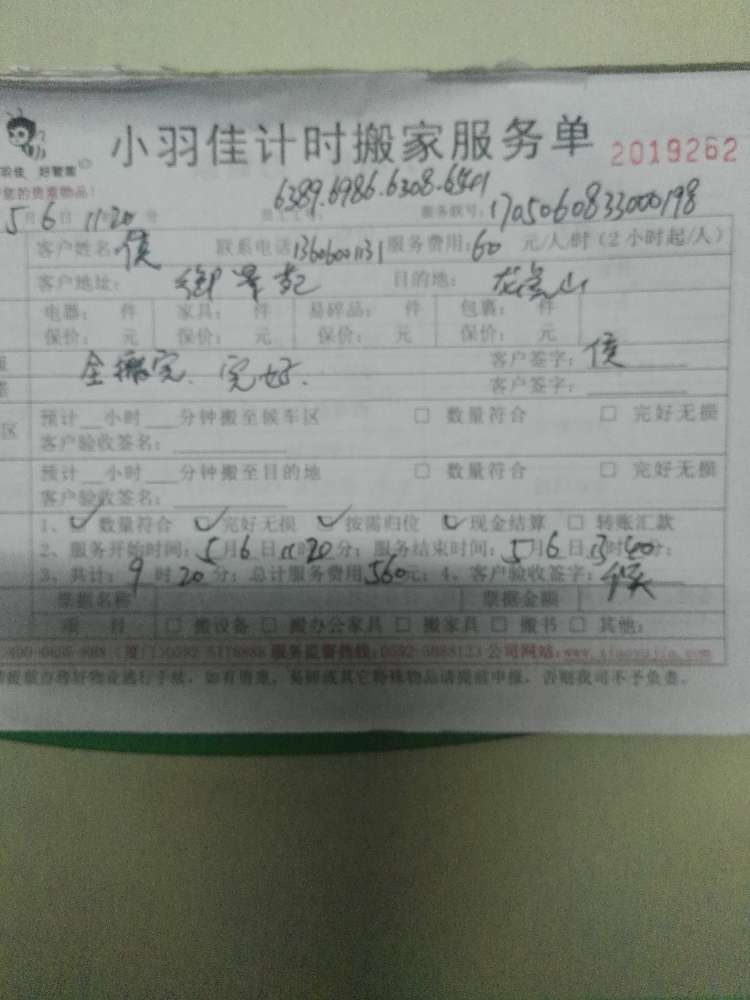 小羽佳计时搬家服务单 2019262
好管家
您的贵重物品!
6389.6986.6308.6541
5月6日 11:20分 服务联号:1705060833000198
客户姓名:侯 联系电话 13606001131 服务费用:60 元/人/时(2小时起/人)
客户地址: 御景苑 目的地: 龙虎山
电器: 件 家具: 件 易碎品: 件 包裹: 件
保价: 元 保价: 元 保价: 元 保价: 元
全搬完、完好. 客户签字:侯
客户签字:
预计__小时___分钟搬至候车区 □ 数量符合 □ 完好无损
区
客户验收签名:
预计__小时___分钟搬至目的地 □ 数量符合 □ 完好无损
客户验收签名:
1、☑ 数量符合 ☑ 完好无损 ☑ 按需归位 ☑ 现金结算 □ 转账汇款
2、服务开始时间:5月6日11时20分;服务结束时间:5月6日13时40分;
3、共计:9时20分;总计服务费用560元;4、客户验收签字:侯
票据名称 票据金额
项 目 □ 搬设备 □ 搬办公家具 □ 搬家具 □ 搬书 □ 其他:
服务监督热线:0592-5688123 公司网站:www.xiaoyujia.com
如有贵重、易碎或其它特殊物品请提前申报,否则我司不予负责。